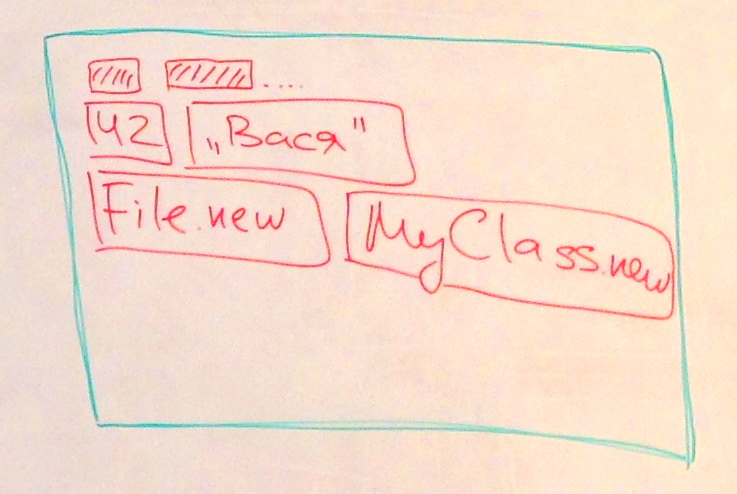 ....
42 „Вася"
File.new MyClass.new